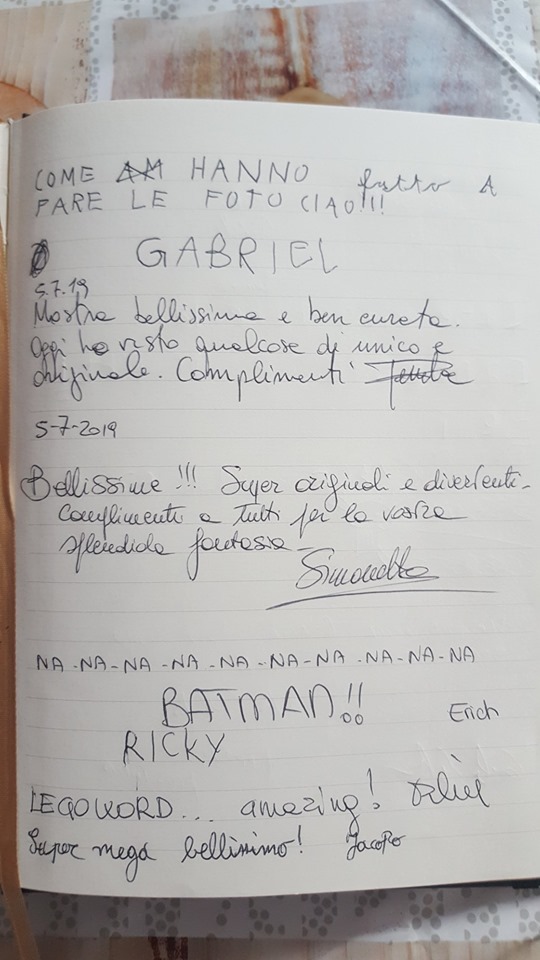 COME AM HANNO fatto A
FARE LE FOTO CIAO!!!
GABRIEL
5.7.19
Mostra bellissima e ben curata.
Oggi ho visto qualcosa di unico e
originale. Complimenti
5-7-2019
Bellissime !!! Super originali e divertenti-
complimenti a tutti per la vostra
splendida fantasia-
Simonetta
NA-NA-NA-NA-NA-NA-NA-NA-NA-NA
BATMAN!!
Erich
RICKY
LEGOWORD... amazing!
Super mega bellissimo! Jacopo